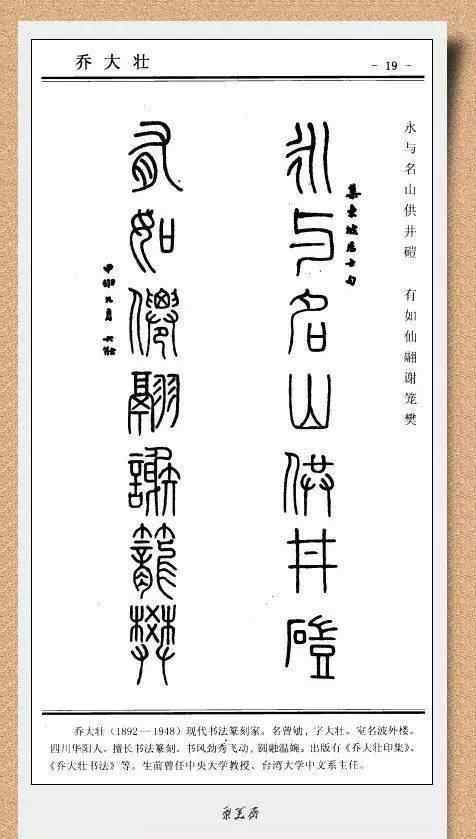 乔大壮
- 19 -
永与名山供井磑 有如仙翮谢笼樊
永与名山供井磑
集東坡居士句
有如僊翮謝籠樊
甲申九月 大壮
乔大壮（1892—1948）现代书法篆刻家。名曾劬，字大壮。室名波外楼。
四川华阳人。擅长书法篆刻。书风劲秀飞动，圆融温婉。出版有《乔大壮印集》、
《乔大壮书法》等。生前曾任中央大学教授、台湾大学中文系主任。